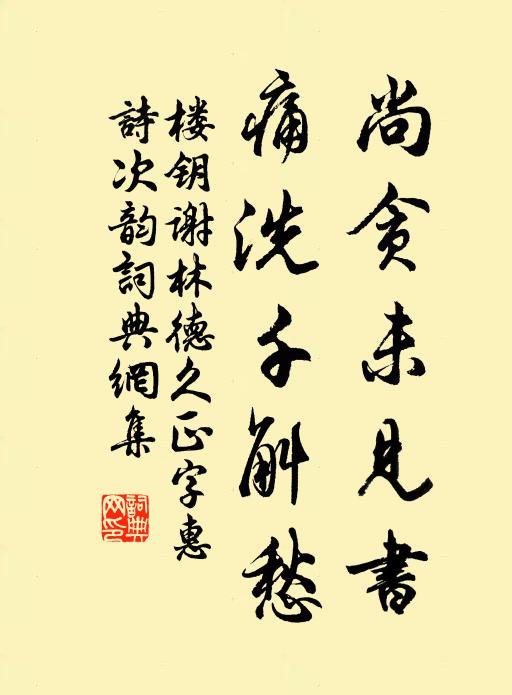 尚贪未見書
痛洗千斛愁
楼钥谢林德久正字惠
詩次韵詞典網集
詞典網印